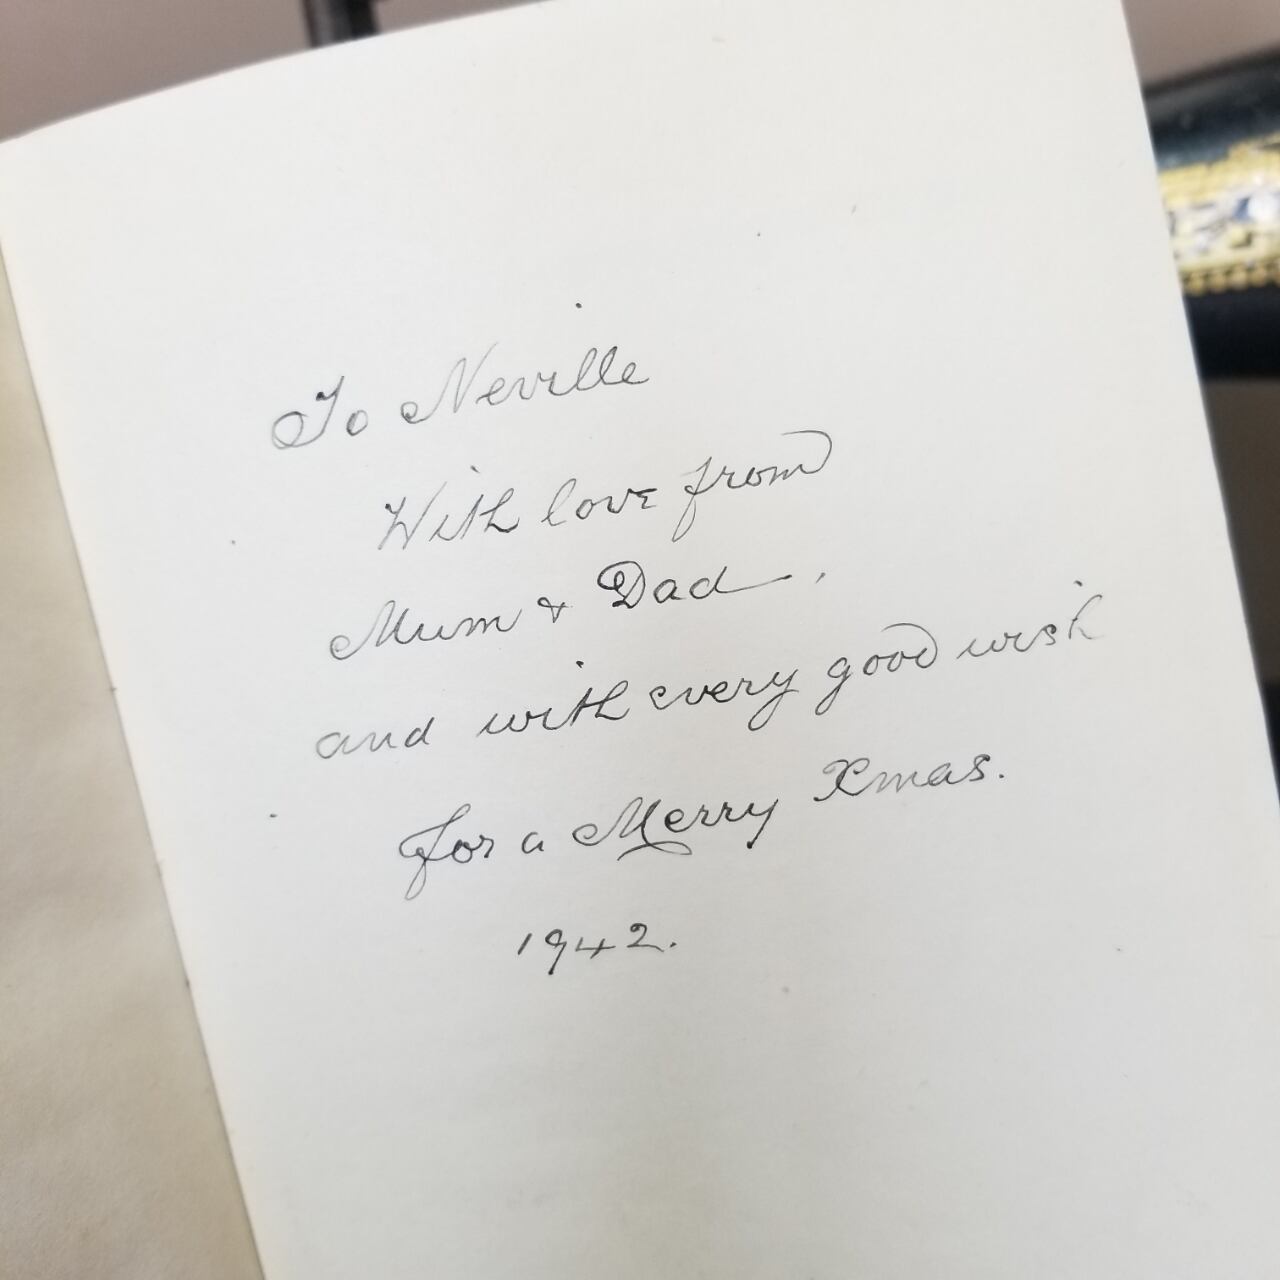 To Neville
With love from
Mum & Dad.
and with every good wish
for a Merry Xmas.
1942.